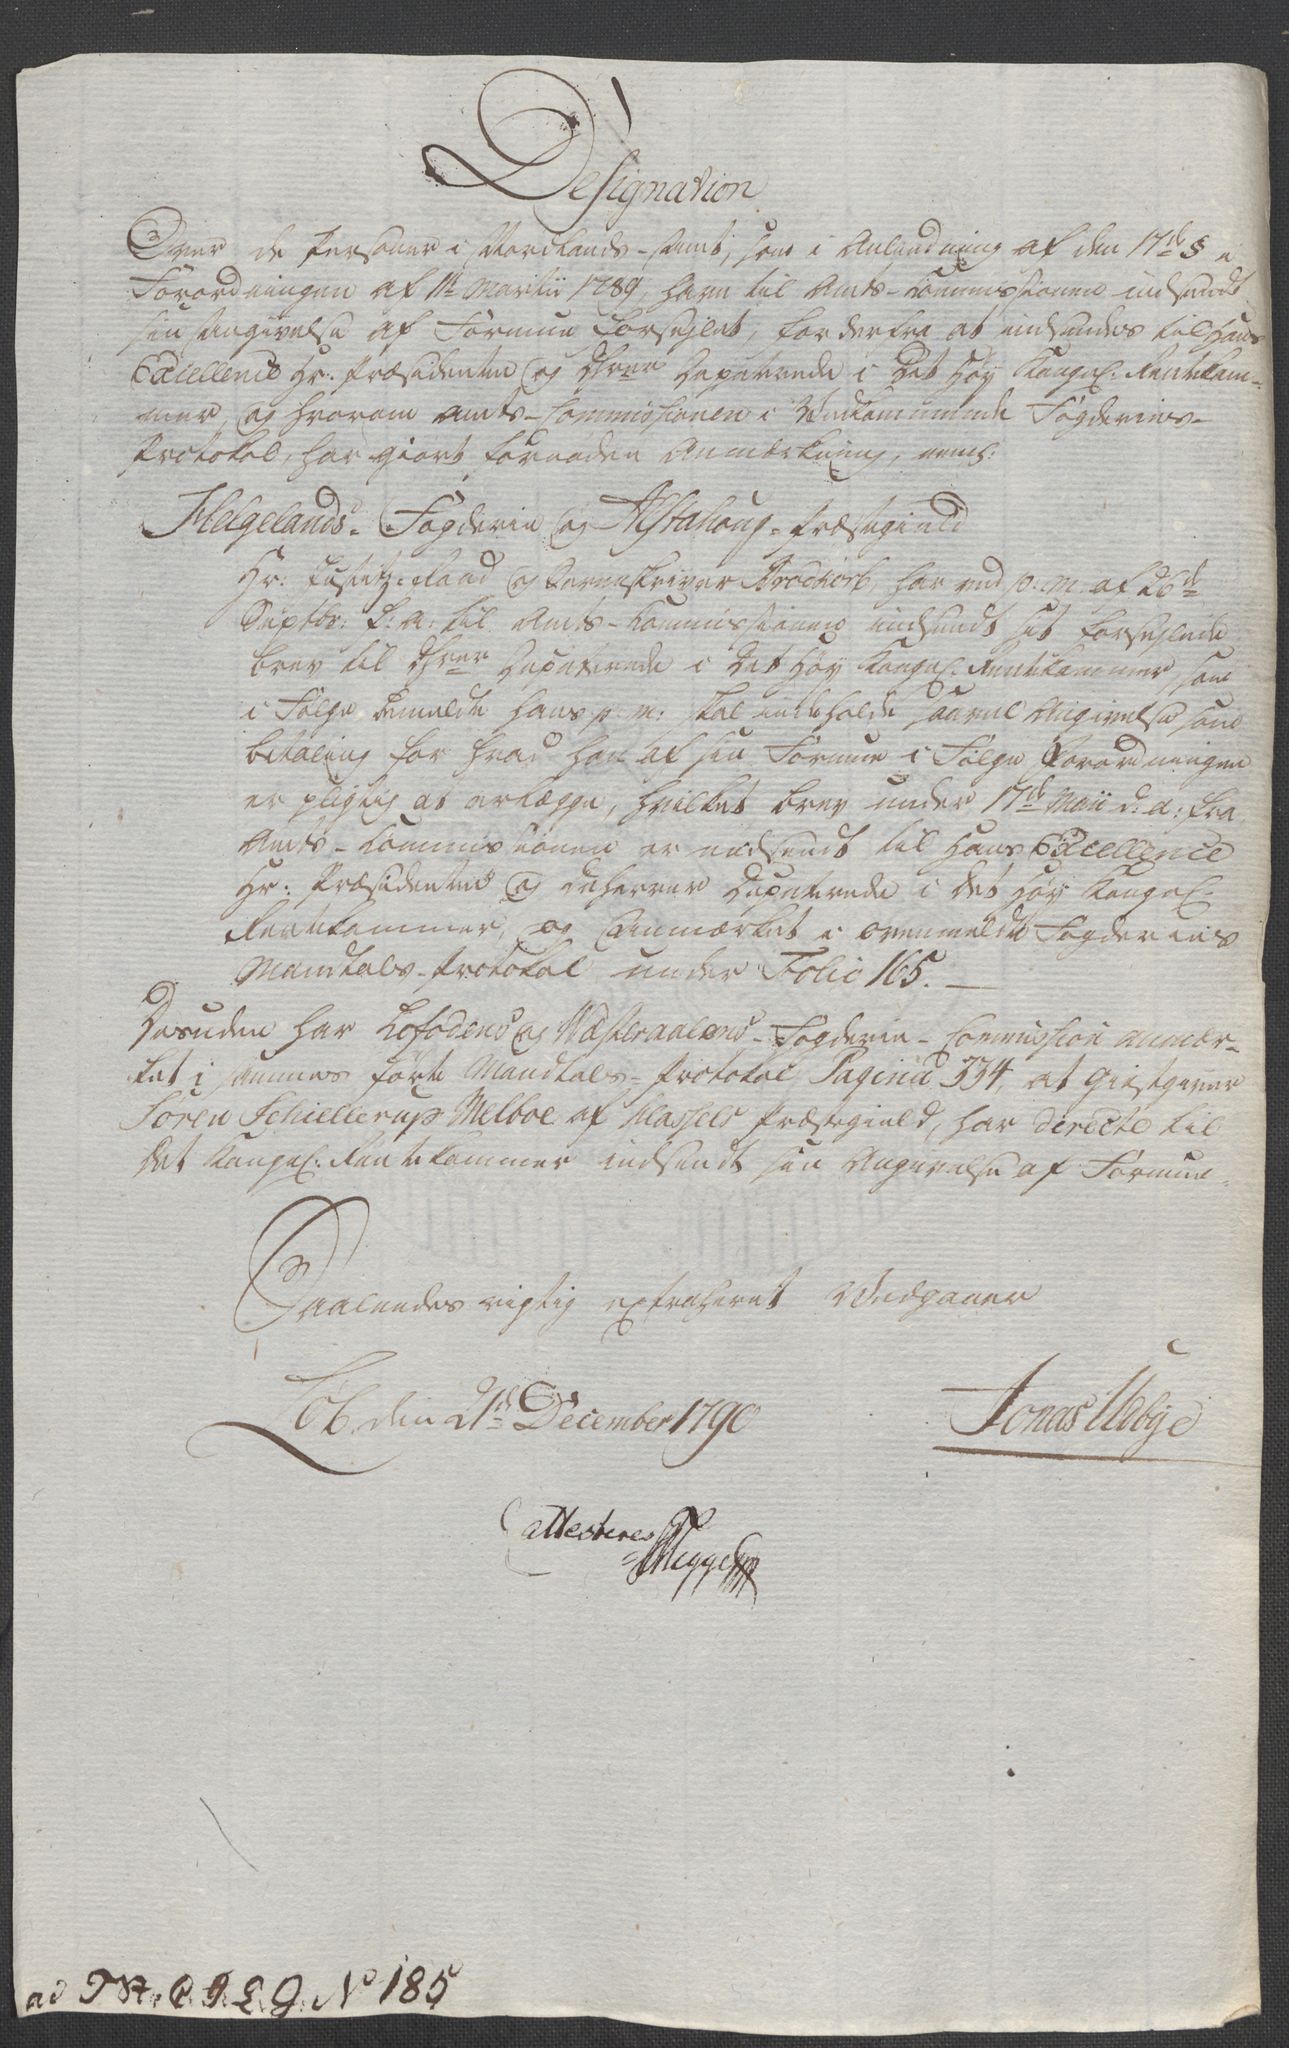 Designation
Over de Personer i Nordlands-Amt, som i Anledning af den 17de § i
Forordningen af 11te Martii 1789, have til Amts-Commissionen indsendt
sin Angivelse af Formue forseglet, for derfra at indsendes til Hans
Excellence Hr: Præsidenten og Dhrer Deputerede i Det Høy Kongel: Rentekam-
mer, og hvorom Amts-Commissionen i Vedkommende Fogderies-
Protokol, har giort saadan Anmærkning, neml:
Helgelands-Fogderie og Alstahoug-Præstegield
Hr: Justitz-Raad og Sorenskriver Brodkorb, har ved p. m. af 26de
Septbr: f: a: til Amts-Commissionen indsendt sit forseglede
brev til Dhrer Deputerede i Det Høy Kongel: Rentekammer, som
i Følge bemeldte hans p. m: skal indeholde saavel Angivelse som
betaling for hvad han af sin Formue i Følge Forordningen
er pligtig at erlægge, hvilket brev under 17de Maii d: a: fra
Amts-Commissionen er indsendt til Hans Excellence
Hr: Præsidenten og de herrer Deputerede i Det Høy Kongel:
Rentekammer, og Anmærket i ovenmeldte Fogderies
Mandtals-Protokol under Folio 165. —
Desuden har Lofodens og Væsteraalens-Fogderie-Commission anmær-
ket i sammes førte Mandtals-Protokol Pagina 334, at Giestgiver
Søren Schiellerup Melboe af Hassels Præstegield, har directe til
det Kongel: Rentekammer indsendt sin Angivelse af Formue.
Saaledes rigtig extraheret Vedgaaer
Löb. den 21de December 1790 Jonas Ulbye
attesteres
ad N° 185